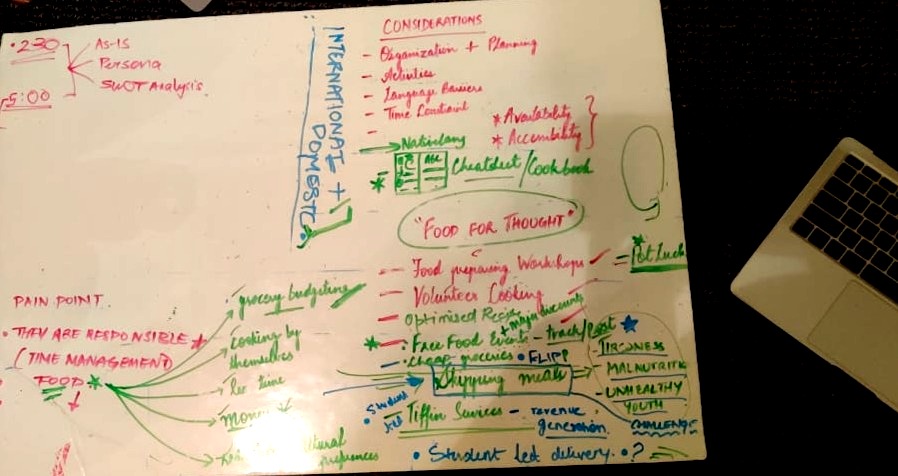 • 2:30
AS-IS
Persona
SWOT Analysis.
5:00
INTERNATIONAL +
DOMESTIC
CONSIDERATIONS
- Organization + Planning
- Activities
- Language Barriers
- Time Constraint
-
* Availability
* Accessibility
* Cheatsheet/Cookbook
"FOOD FOR THOUGHT"
- Food preparing Workshops
= Pot Luck
- Volunteer Cooking
- Optimised
* - Free Food Events - track/
- cheap groceries • FLIPP
Skipping meals
- TIREDNESS
- MALNUTRITION
- UNHEALTHY
YOUTH
CHALLENGE
• Student
Tiffin Services - revenue
generation.
• Student led delivery. • ?
PAIN POINT.
• THEY ARE RESPONSIBLE *
(TIME MANAGEMENT)
FOOD *
grocery budgeting
cooking by
themselves
time
Money
preferences